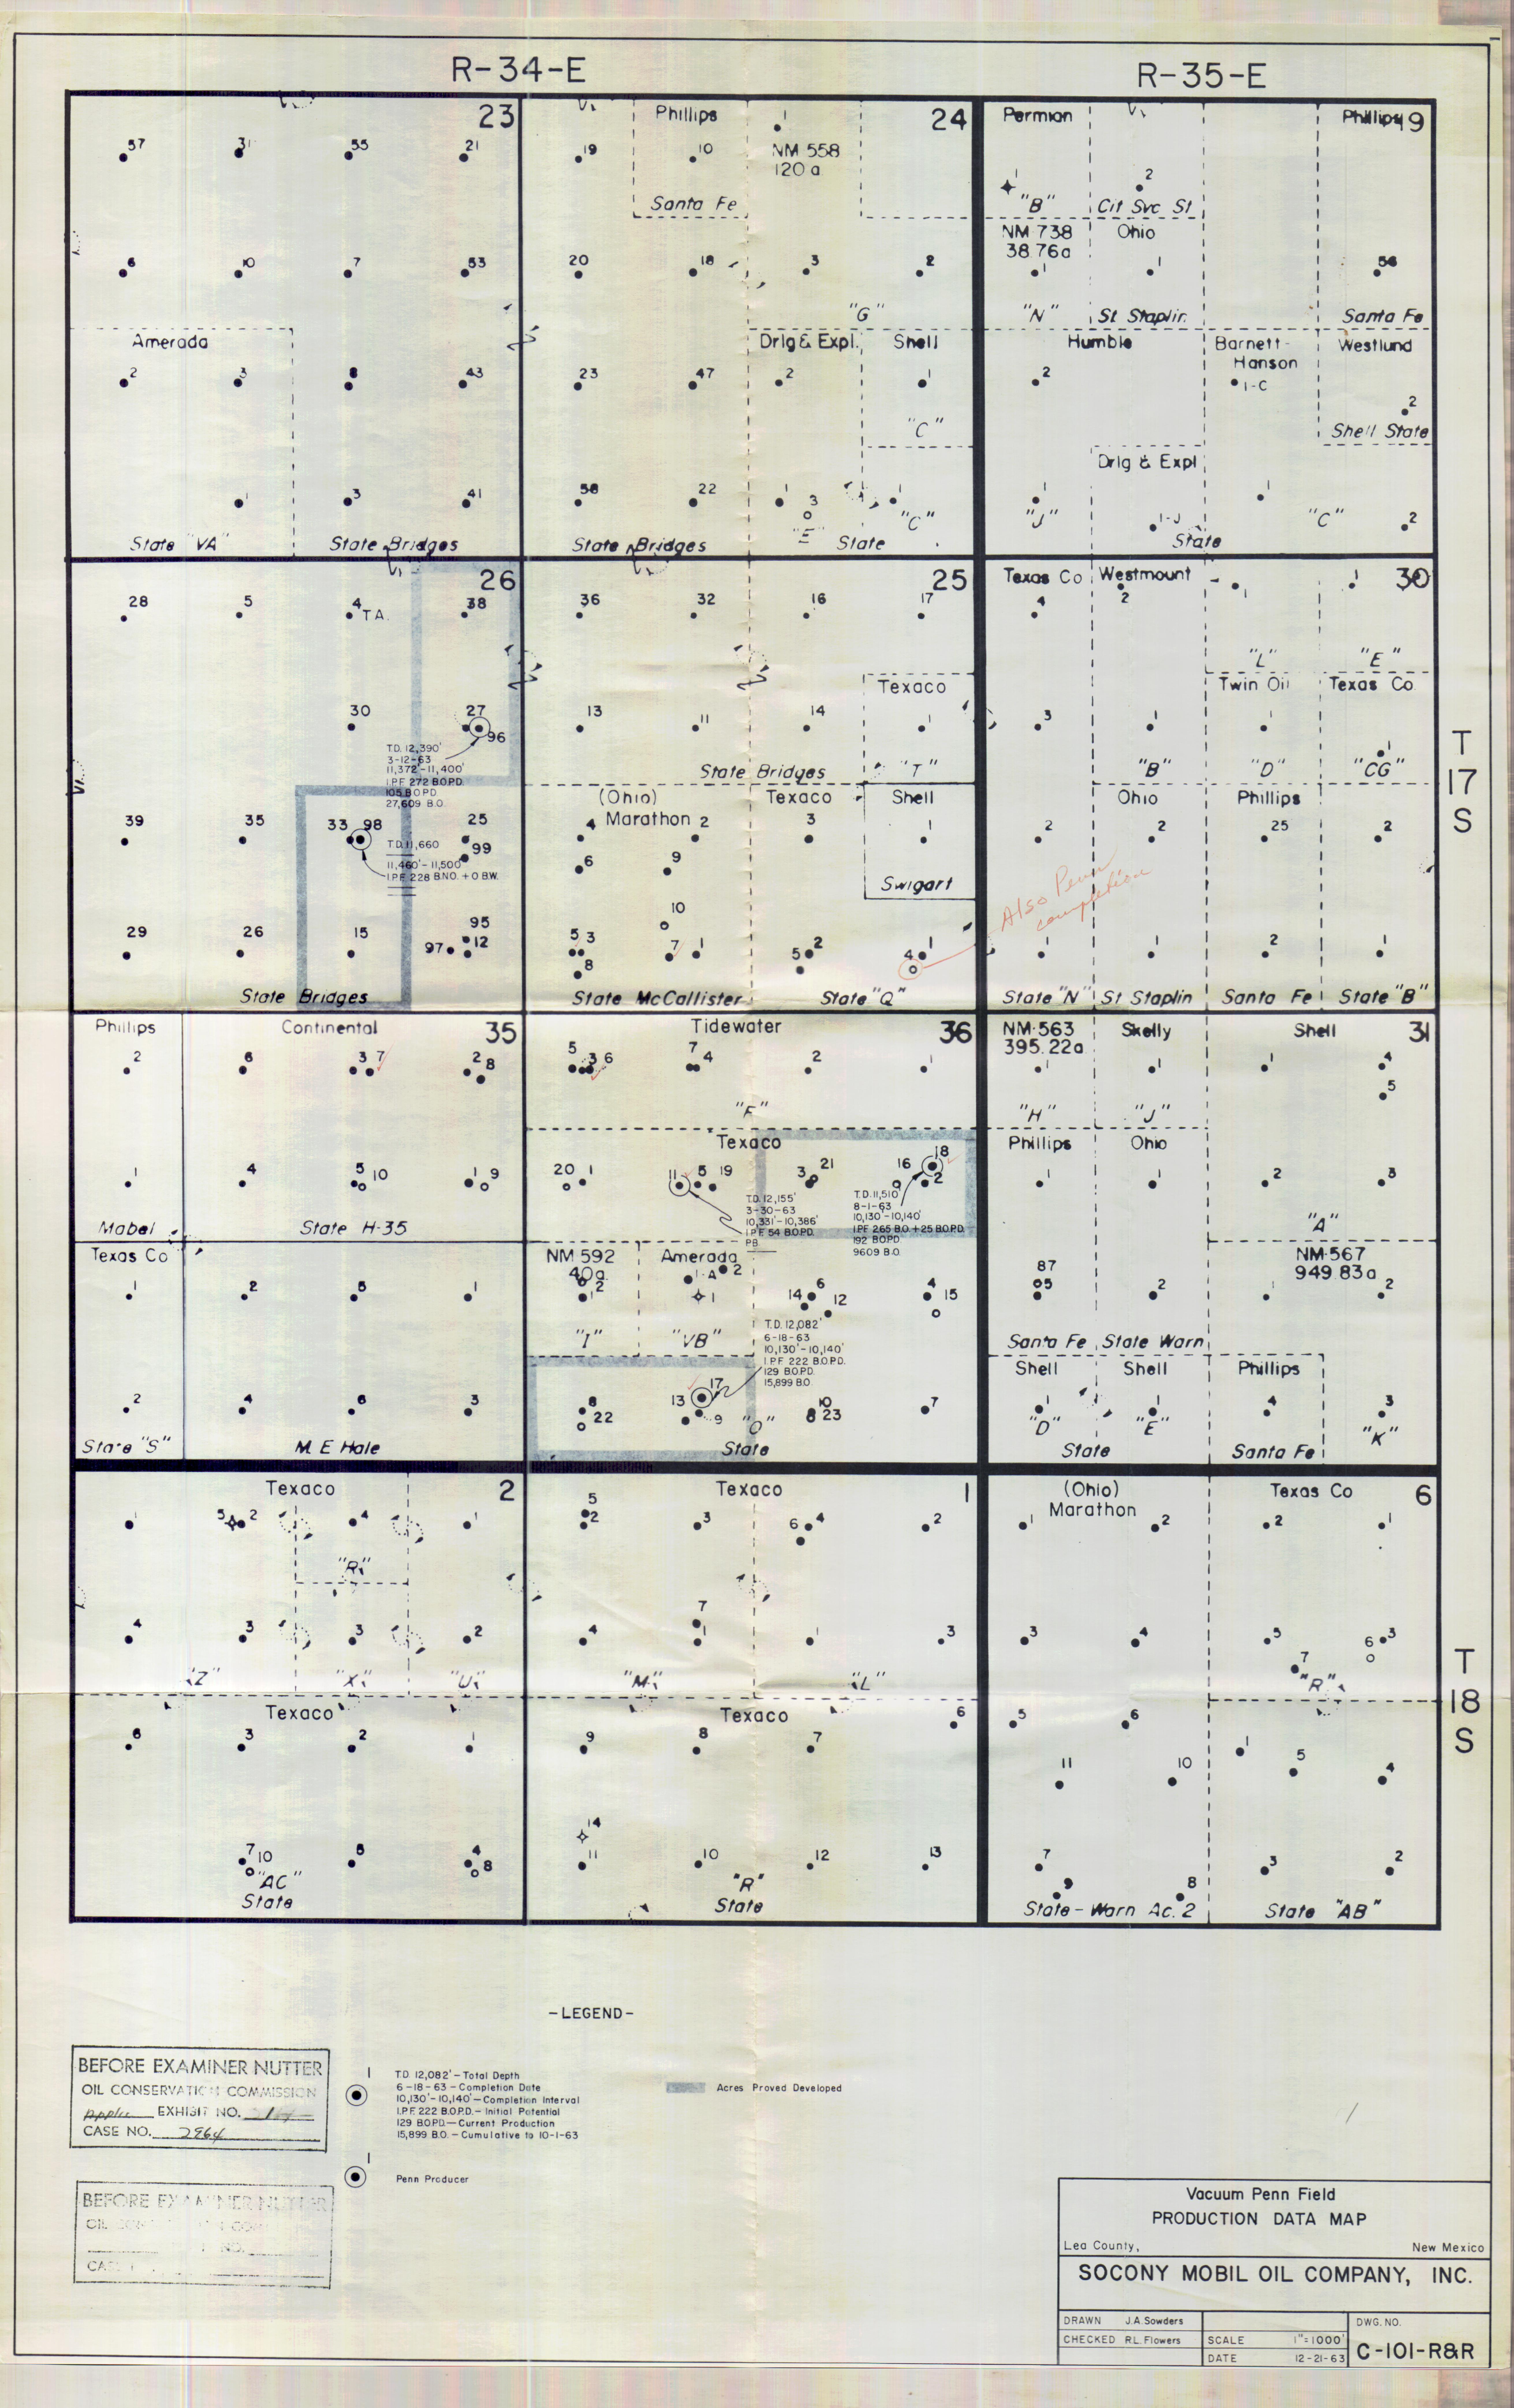 R-34-E
R-35-E
23
57
31
55
21
6
10
7
53
Amerada
2
3
8
43
1
3
41
State "VA"
State Bridges
24
Phillips
1
19
10
NM 558
120 a
Santa Fe
20
18
3
2
"G"
Drlg & Expl.
Shell
23
47
2
1
"C"
58
22
1
3
1
"E"
"C"
State Bridges
State
Permian
Phillips
19
1
2
"B"
Cit Svc St
NM 738
Ohio
38.76a
1
1
56
"N"
St Staplin
Santa Fe
Humble
Barnett-
Hanson
Westlund
2
1-C
2
Shell State
Drlg & Expl
1
1
"J"
1-J
"C"
2
State
26
28
5
4 T A
38
30
27
96
T.D. 12,390'
3-12-63
11,372'-11,400'
I.P.F. 272 B.O.P.D.
105 B.O.P.D.
27,609 B.O.
39
35
33 98
25
99
T.D. 11,660
11,460'-11,500'
I.P.F. 228 B.N.O. + O B.W.
29
26
15
95
97
12
State Bridges
25
36
32
16
17
Texaco
13
11
14
1
State Bridges
"T"
(Ohio)
Marathon
Texaco
Shell
4
2
3
1
6
9
Swigart
10
5 3
7
1
5
2
4
1
8
State McCallister
State "Q"
Also Penn
completion
Texas Co
Westmount
30
4
2
1
1
"L"
"E"
Twin Oil
Texas Co
3
1
1
1
"B"
"D"
"CG"
Ohio
Phillips
2
2
25
2
1
1
2
1
State "N"
St Staplin
Santa Fe
State "B"
T
17
S
Phillips
Continental
35
2
6
3 7
2 8
1
4
5 10
1 9
Mabel
State H-35
Texas Co
1
2
5
1
2
4
6
3
State "S"
M. E. Hale
Tidewater
36
5
3 6
7
4
2
1
"F"
Texaco
20 1
11
5 19
3
21
16
18
2
T.D. 12,155'
3-30-63
10,331'-10,386'
I.P.F. 54 B.O.P.D.
P.B.
T.D. 11,510'
8-1-63
10,130'-10,140'
I.P.F. 265 B.O. + 25 B.O.P.D.
192 B.O.P.D.
9609 B.O.
NM 592
40a
Amerada
2
1
1-A
2
1
14
6
12
4
15
"I"
"VB"
T.D. 12,082'
6-18-63
10,130'-10,140'
I.P.F. 222 B.O.P.D.
129 B.O.P.D.
15,899 B.O.
8
22
13
17
9
"O"
10
8 23
7
State
NM-563
395.22a
Skelly
Shell
31
1
1
1
4
5
"H"
"J"
Phillips
Ohio
1
1
2
3
"A"
NM-567
949.83a
87
5
2
1
2
Santa Fe
State Warn
Shell
Shell
Phillips
1
1
4
3
"D"
"E"
"K"
State
Santa Fe
Texaco
2
1
5 2
4
1
"R"
4
3
3
2
"Z"
"X"
"U"
Texaco
6
3
2
1
7 10
5
4
8
"AC"
State
Texaco
1
5
2
3
6 4
2
7
4
1
1
3
"M"
"L"
Texaco
9
8
7
6
14
11
10
12
13
"R"
State
(Ohio)
Marathon
Texas Co
6
1
2
2
1
3
4
5
6 3
7
"R"
5
6
11
10
1
5
4
7
9
8
3
2
State-Warn Ac. 2
State "AB"
T
18
S
-LEGEND-
BEFORE EXAMINER NUTTER
OIL CONSERVATION COMMISSION
EXHIBIT NO.
CASE NO. 2964
1
T.D. 12,082' - Total Depth
6-18-63 - Completion Date
10,130'-10,140' - Completion Interval
I.P.F. 222 B.O.P.D. - Initial Potential
129 B.O.P.D. - Current Production
15,899 B.O. - Cumulative to 10-1-63
Acres Proved Developed
1
Penn Producer
BEFORE EXAMINER NUTTER
Vacuum Penn Field
PRODUCTION DATA MAP
Lea County,
New Mexico
SOCONY MOBIL OIL COMPANY, INC.
DRAWN J.A. Sowders
CHECKED R.L. Flowers
SCALE 1"=1000'
DATE 12-21-63
DWG. NO.
C-101-R&R